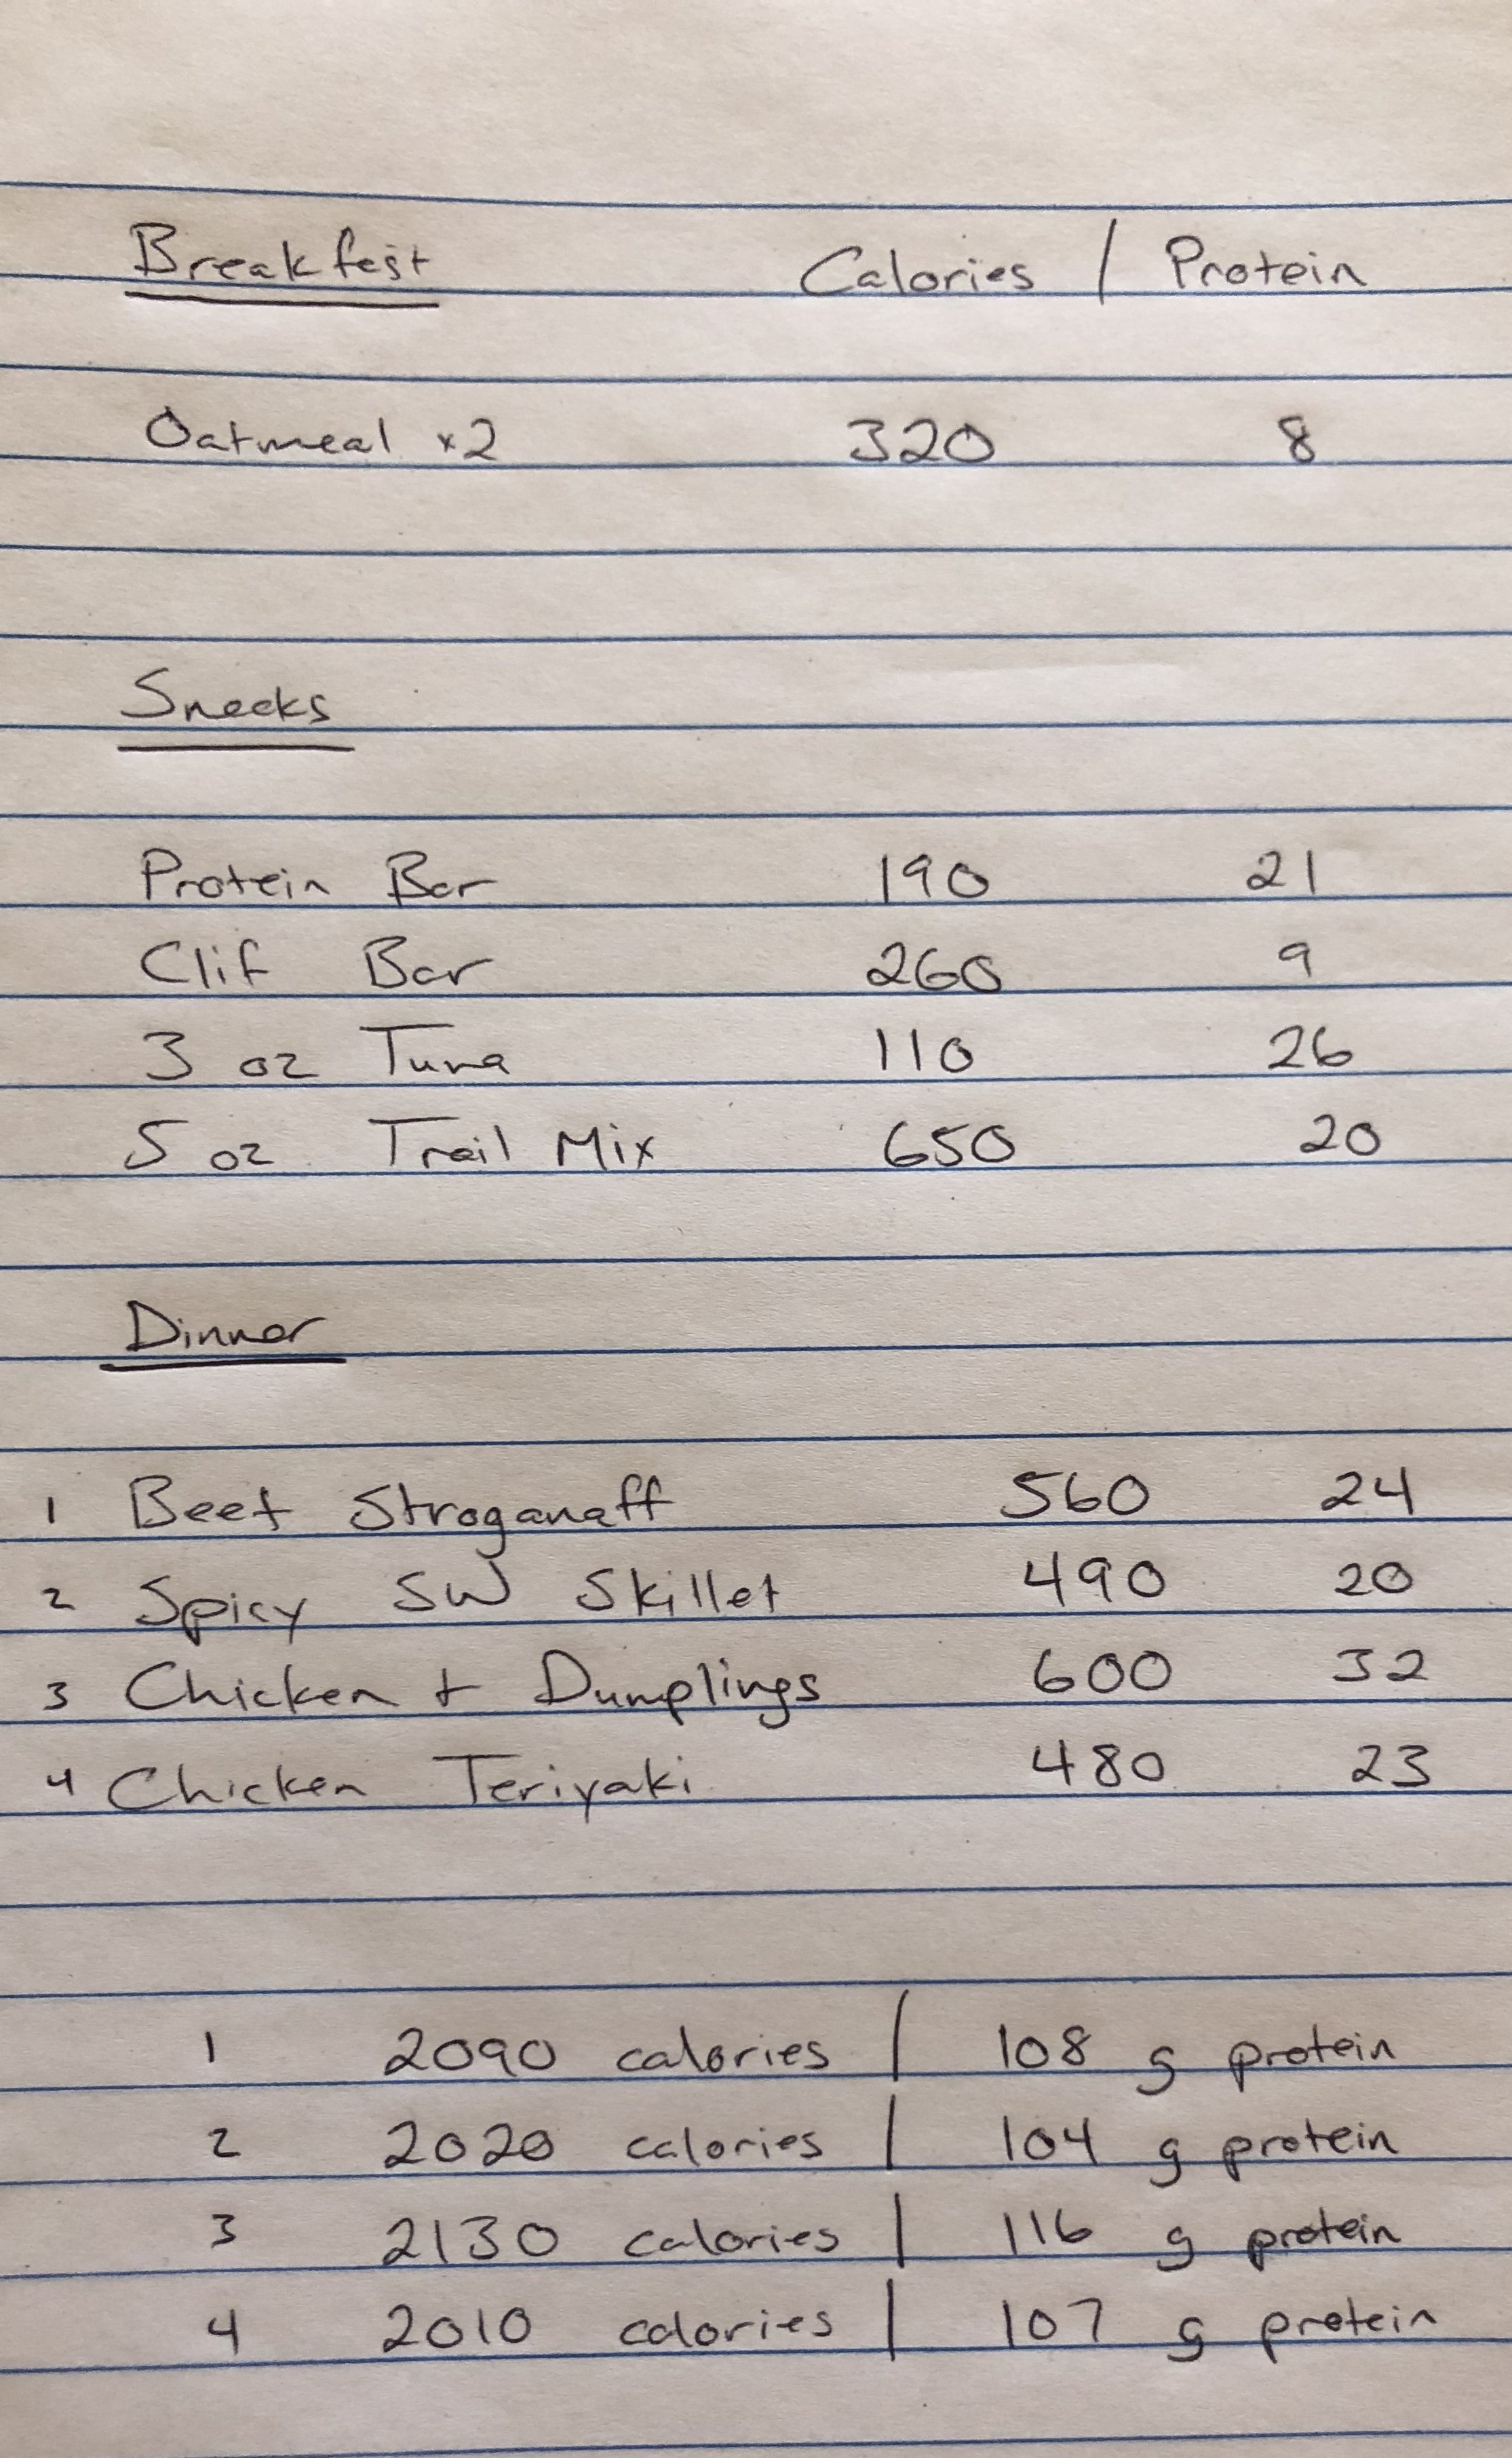 Breakfast Calories / Protein
Oatmeal x2 320 8
Snacks
Protein Bar 190 21
Clif Bar 260 9
3 oz Tuna 110 26
5 oz Trail Mix 650 20
Dinner
1 Beef Stroganoff 560 24
2 Spicy SW Skillet 490 20
3 Chicken + Dumplings 600 32
4 Chicken Teriyaki 480 23
1 2090 calories | 108 g protein
2 2020 calories | 104 g protein
3 2130 calories | 116 g protein
4 2010 calories | 107 g protein